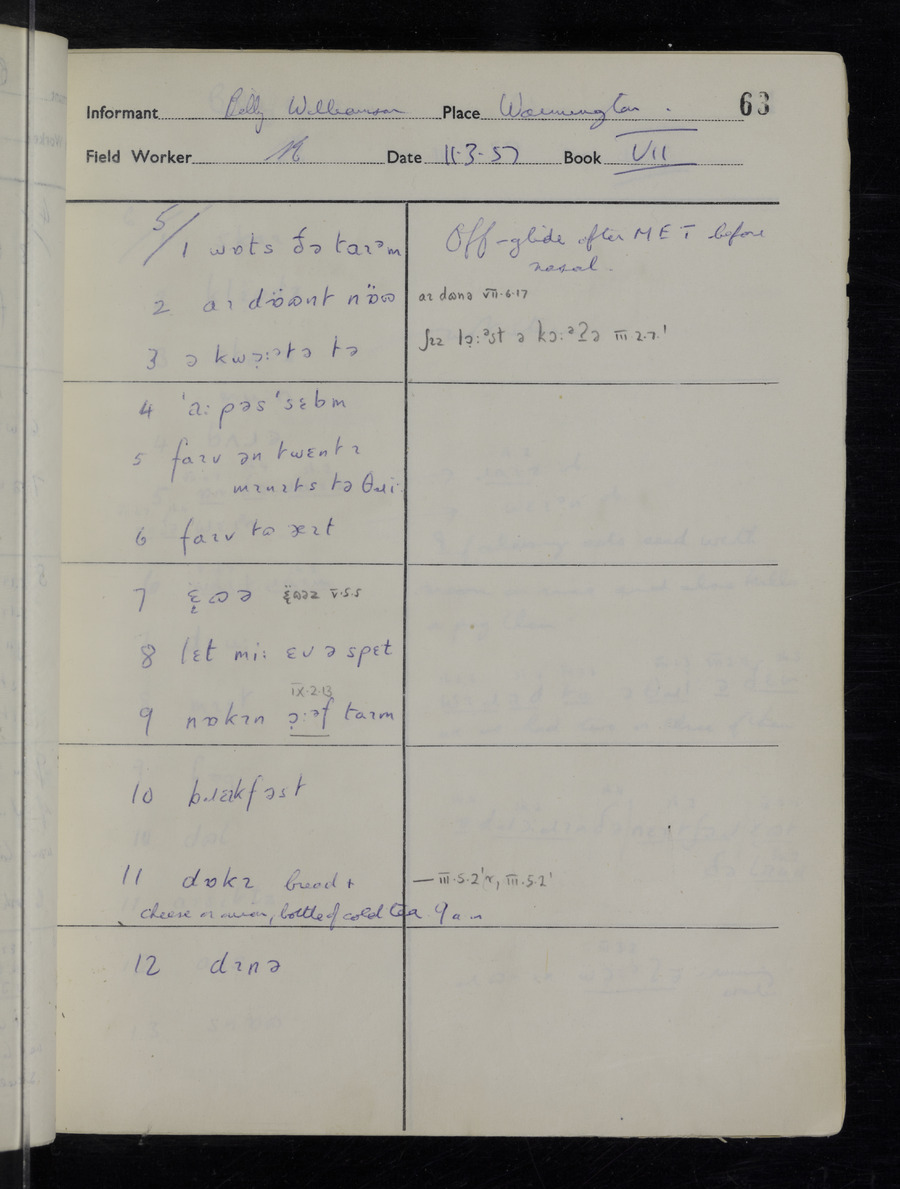 Informant Billy Place 63
Field Worker Date 11-3-57 Book VII
5/
1 wɒts ðə taɪᵊm
Off-glide after MET before
nasal.
2 aɪ döʊnt nöʊ
aɪ dɒnə VII·6·17
3 ə kwɔ̣:ᵊtə tə
lɔ̣:ᵊst ə kɔ:ᵊʔə III 2·7'
4 'a: pəs 'sɛbm
5 faɪv ən twɛntɪ
mɪnɪts tə θɹi:
6 faɪv tə æɪt
7 V·5·5
8 lɛt mi: ɛv ə spɛt
IX·2·13
9 nɒkɪn ɔ̣:ᵊf taɪm
10 bɹɛkfəst
11 dɒkɪ bread +
— III·5·2'r, III·5·2'
cheese or onion, bottle of cold tea 9 a m
12 dɪnə